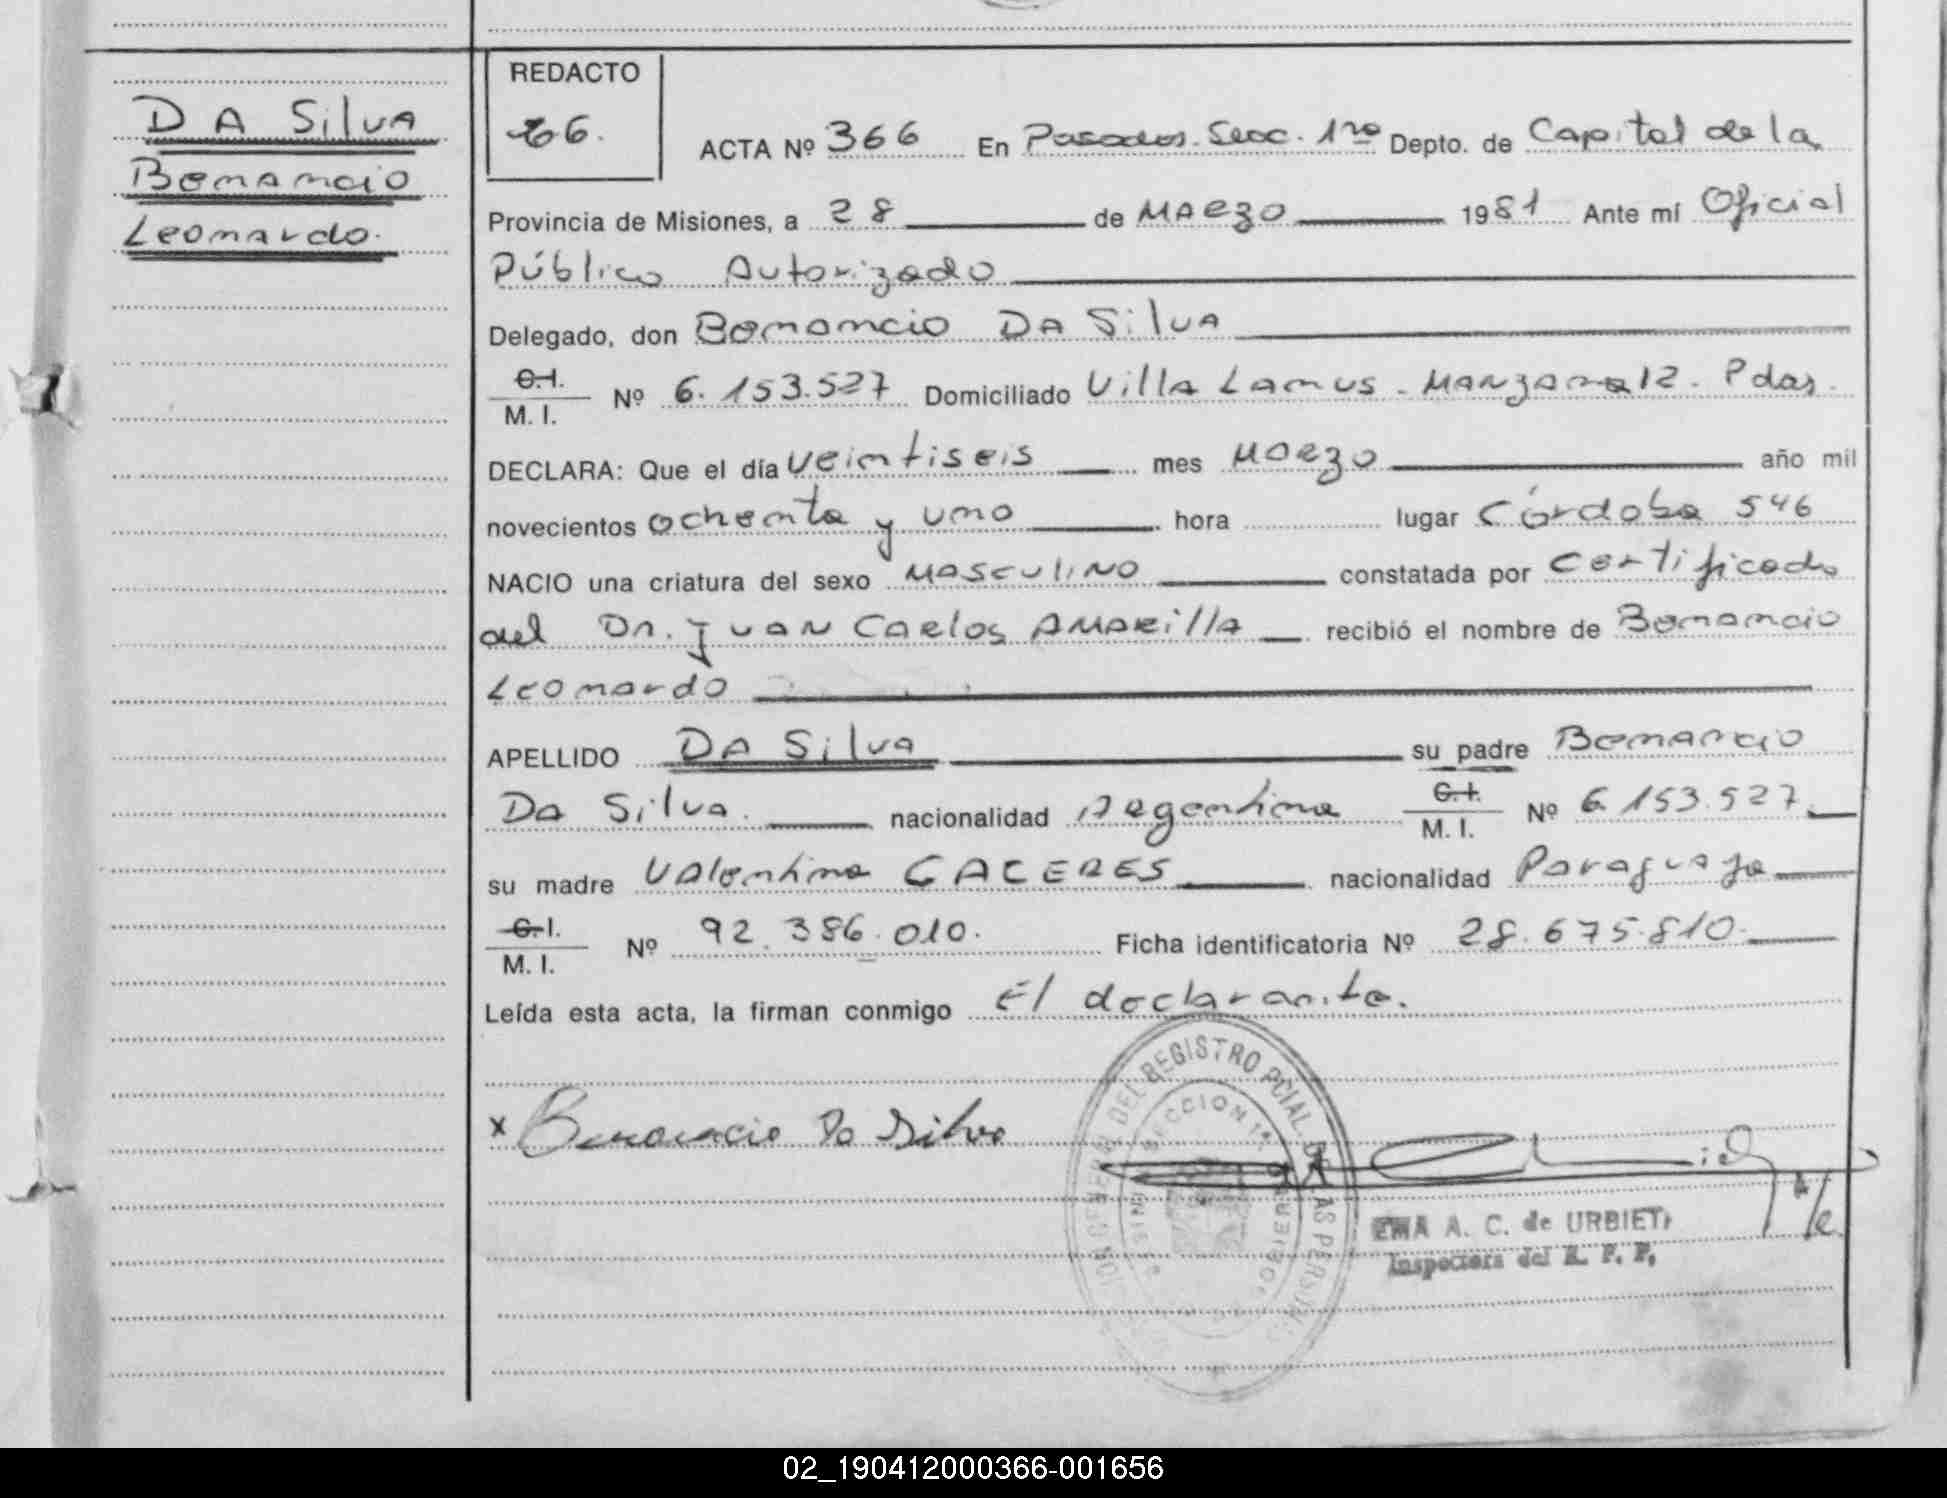 DA Silva
Bonancio
Leonardo.
REDACTO
66.
ACTA Nº 366 En Posadas. Secc. 1ra Depto. de Capital de la
Provincia de Misiones, a 28 de Marzo 1981 Ante mí Oficial
Público Autorizado
Delegado, don Bonancio DA Silva
C.I.
M. I. Nº 6.153.527 Domiciliado Villa Lanus - Manzana 12. Pdas.
DECLARA: Que el día veintiseis mes Marzo año mil
novecientos ochenta y uno hora lugar Córdoba 546
NACIO una criatura del sexo Masculino constatada por Certificado
del Dr. Juan Carlos Amarilla recibió el nombre de Bonancio
Leonardo
APELLIDO DA Silva su padre Bonancio
Da Silva. nacionalidad Argentina C.I.
M. I. Nº 6.153.527.
su madre Valentina CACERES nacionalidad Paraguaya
C.I.
M. I. Nº 92.386.010. Ficha identificatoria Nº 28.675.810.
Leída esta acta, la firman conmigo El declarante.
x Bonancio Da Silva
DEL REGISTRO PCIAL. DE LAS PERSONAS
SECCION 1ª
A. C. de URBIETA
Inspectora del R. P. P.
02_190412000366-001656